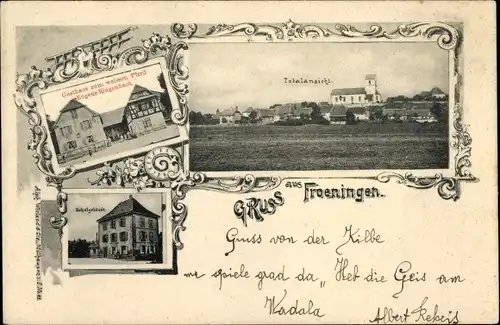 Gasthaus zum weissen Pferd
Eugene Ringenbach
Totalansicht.
Schulgebäude.
Gruss aus Froeningen.
Gruss von der Kilbe
mr spiele grad da „Heb die Geis am
Wadala
Albert